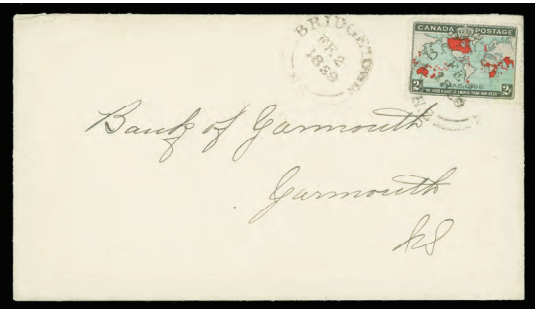 BRIDGETOWN
FE 2
1899
CANADA POSTAGE
XMAS 1898
2c 2c
"WE HOLD A VASTER EMPIRE THAN HAS BEEN"
Bank of Yarmouth
Yarmouth
NS